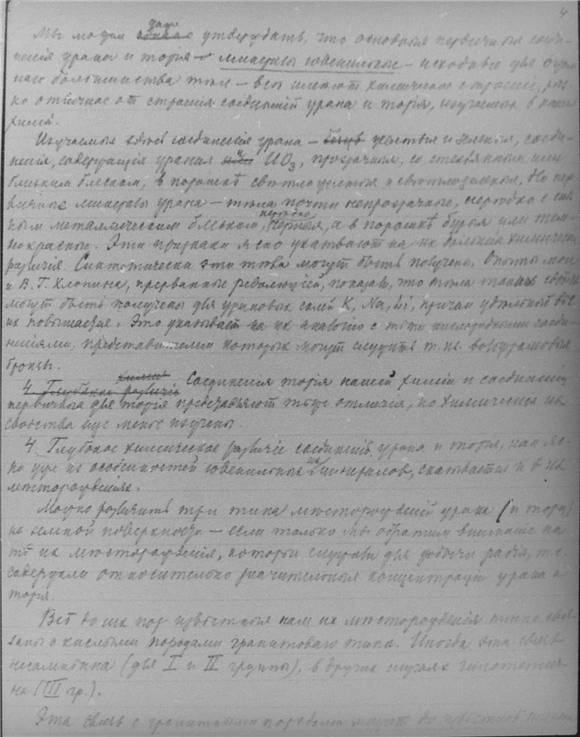 4
даже
Мы можем утверждать, что основныя первичныя соеди-
ненія урана и торія – минералы ювенильные – исходныя для огром-
наго большинства тѣл – всѣ имѣют химическое строеніе, рѣз-
ко отличное от строенія соединеній урана и торія, изучаемых в нашей
химіи.
Изучаемыя здѣсь соединенія урана – желтыя и зеленыя, соеди-
ненія, содержащія уранил UO₃, прозрачныя, со стекляным или
блеском, в порошкѣ свѣтложелтыя и свѣтлозеленыя. Но пер-
вичные минералы урана – тѣла почти непрозрачныя, нерѣдко с силь-
ным металлическим блеском, нерѣдко черныя, а в порошкѣ бурыя или тем-
нокрасныя. Эти признаки ясно указывают на их большія химическія
различія. Синтетически эти тѣла могут быть получены. Опыты мои
и В. Г. Хлопина, прерванные революціей, показали, что тѣла таких свойств
могут быть получены для урановых солей K, Na, Li, причем удѣльный вѣс
их повышается. Это указывает на их аналогію с тѣми кислородными соеди-
неніями, представителем которых могут служить т. н. вольфрамовыя
бронзы.
4. Глубокое химич. различіе Соединенія торія нашей химіи и соединенія
первичныя для торія представляют тѣже отличія, но химически их
свойства еще менѣе изучены.
4. Глубокое химическое различіе соединеній урана и торія, как яс-
но уже из особенностей ювенильных их минералов, сказывается и в их
мѣсторожденіях.
Можно различить три типа мѣсторожденій урана (и торія)
на земной поверхности – если только мы обратим вниманіе на
тѣ их мѣсторожденія, которыя служили для добычи радія, т. е.
содержали относительно значительныя концентраціи урана и
торія.
Всѣ до сих пор извѣстныя нам их мѣсторожденія тѣсно свя-
заны с кислыми породами гранитоваго типа. Иногда эта связь
несомнѣнна (для I и II группы), в других случаях гипотетич-
на (III гр.).
Эта связь с гранитными породами может до извѣстной